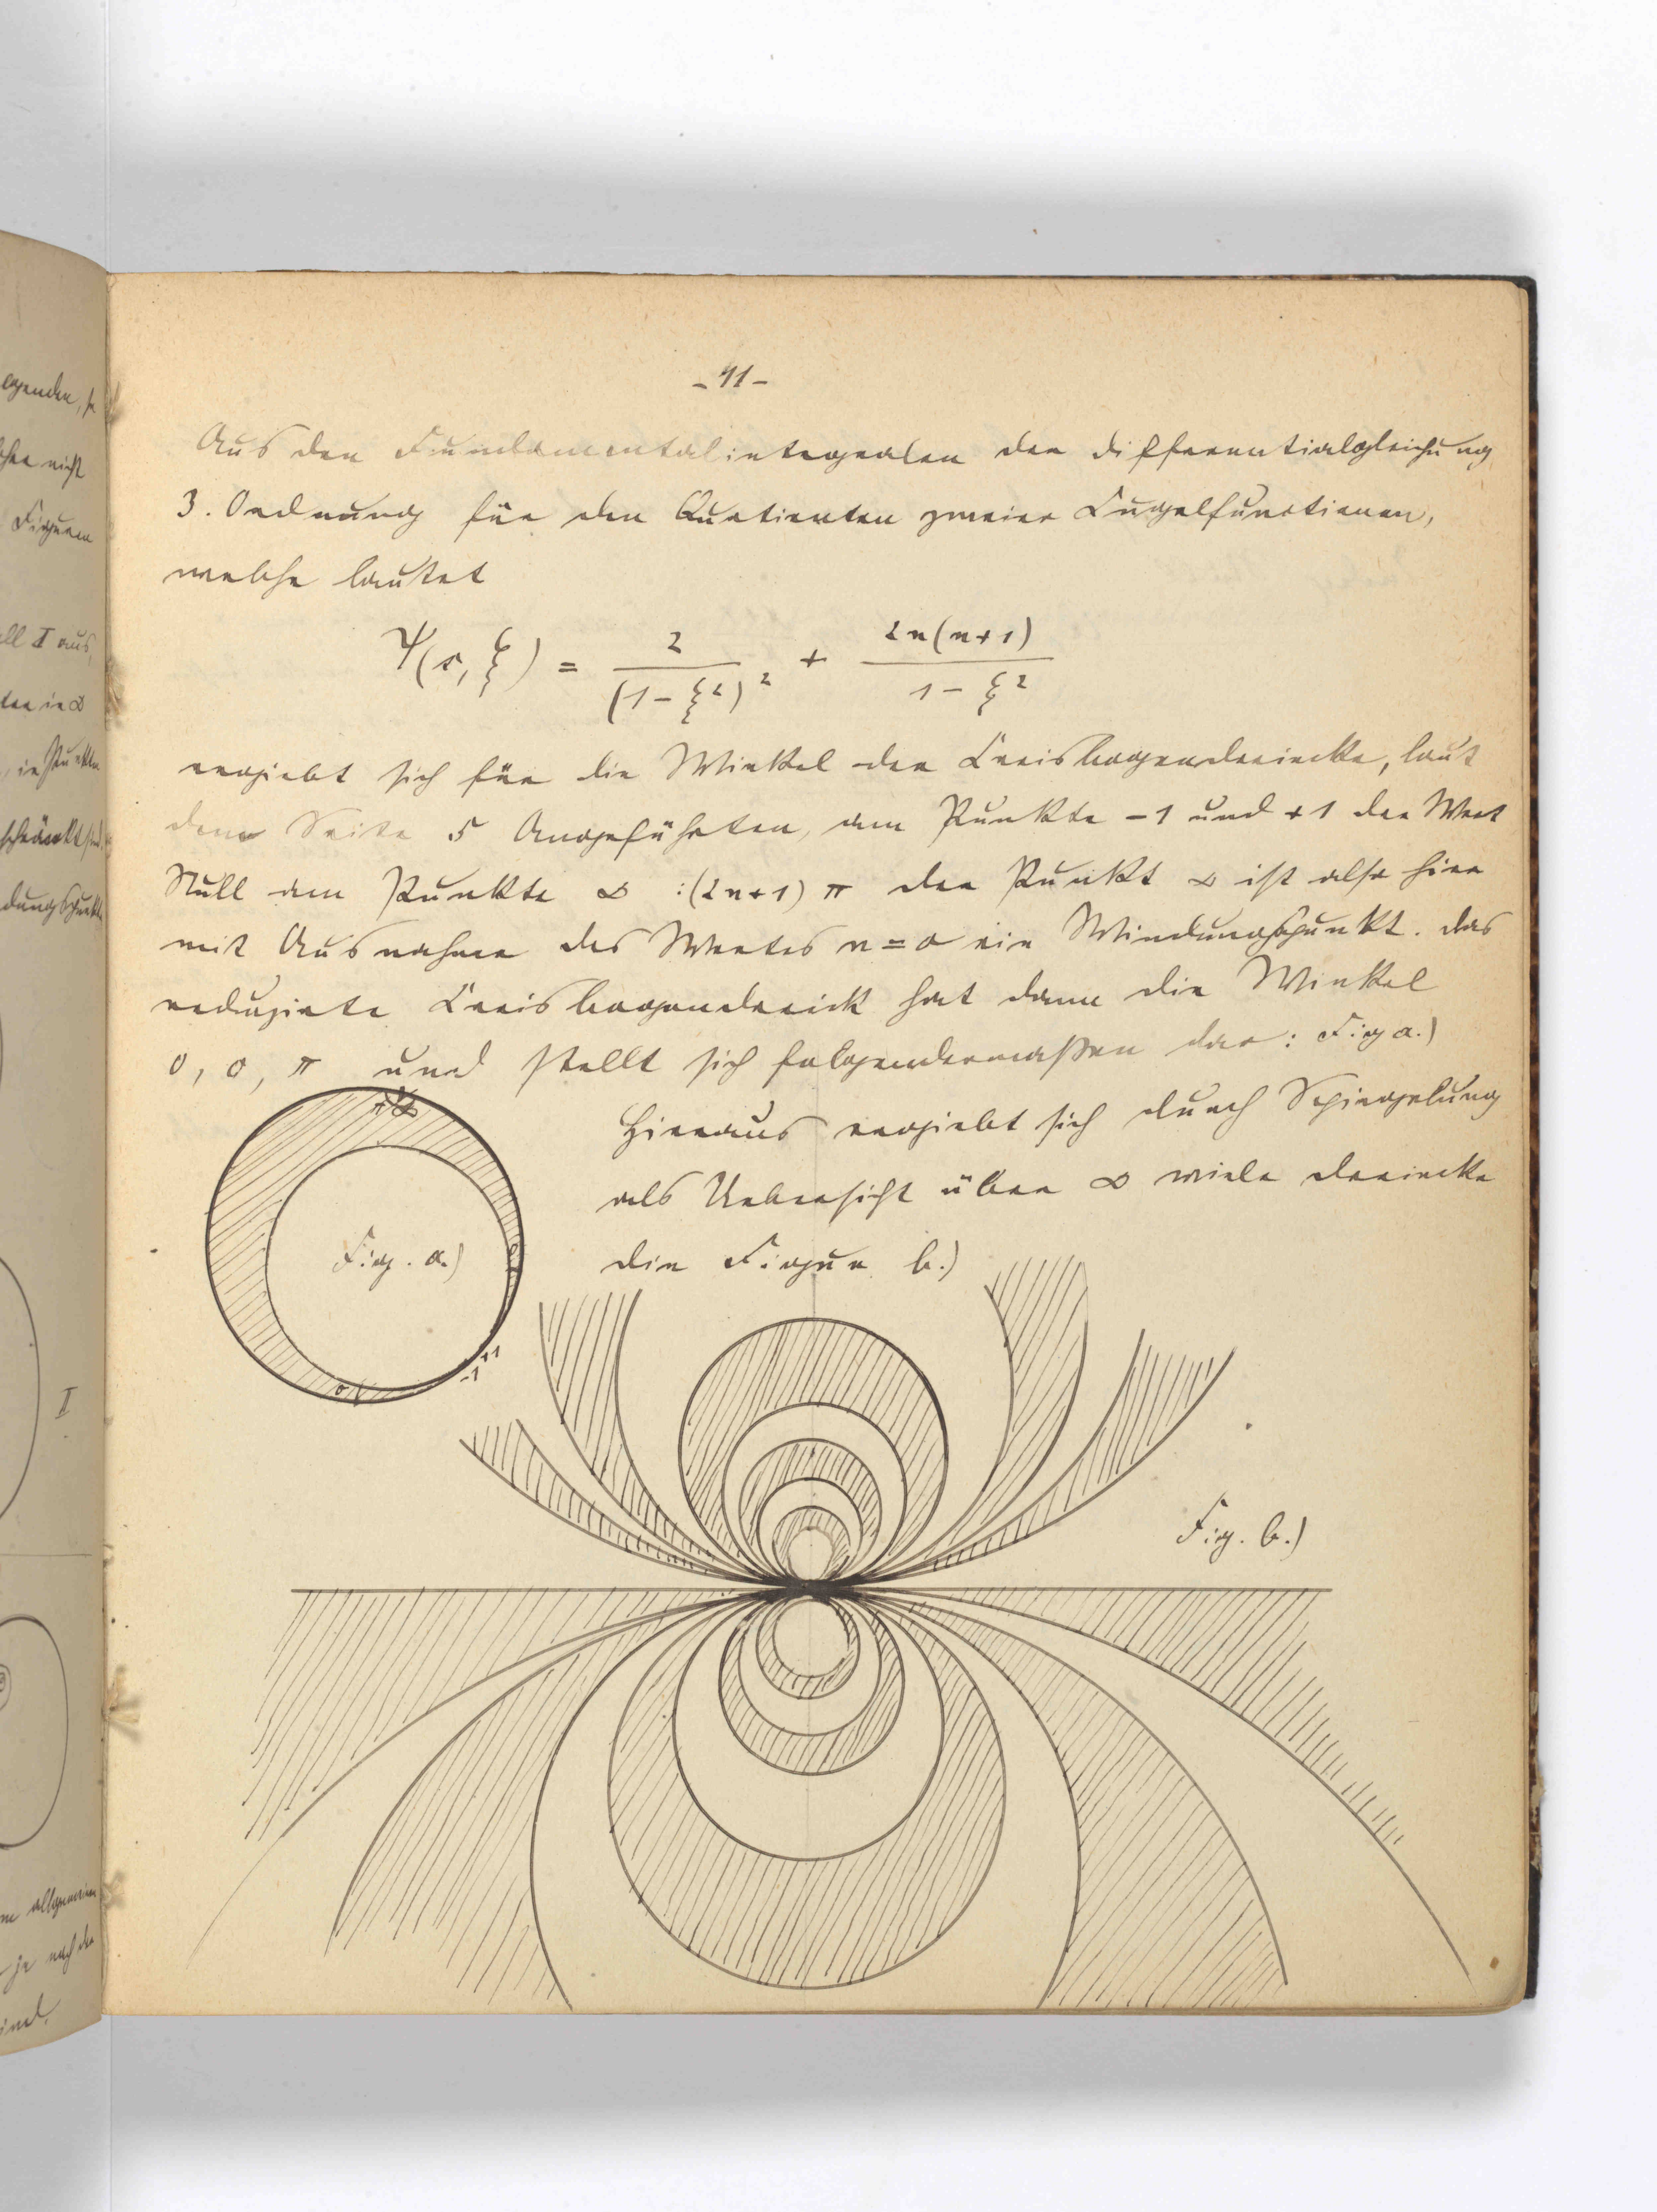 - 41 -
Aus den Fundamentalintegralen der Differentialgleichung
3. Ordnung für den Quotienten zweier Kugelfunctionen,
welche lautet
Ψ(s, ξ) = 2 / (1 - ξ²)² + 2n(n+1) / 1 - ξ²
ergiebt sich für die Winkel der Kreisbogendreiecke, laut
dem Seite 5 Angeführten, am Punkte -1 und +1 der Wert
Null am Punkte ∞ :(2n+1) π der Punkt ∞ ist also hier
mit Ausnahme des Wertes n = 0 ein Windungspunkt. Das
reduzierte Kreisbogendreieck hat dann die Winkel
0, 0, π und stellt sich folgendermaßen dar: Fig a.)
Hieraus ergiebt sich durch Spiegelung
als Uebersicht über ∞ viele Dreiecke
die Figur b.)
π ∞
Fig. a.)
0
+1
-1
0
Fig. b.)
egenden, so
nicht
Figuren
all I aus,
ten in ∞
, in Punkten
schränkt sind,
dungspunkte
I
allgemein
je nach der
sind.